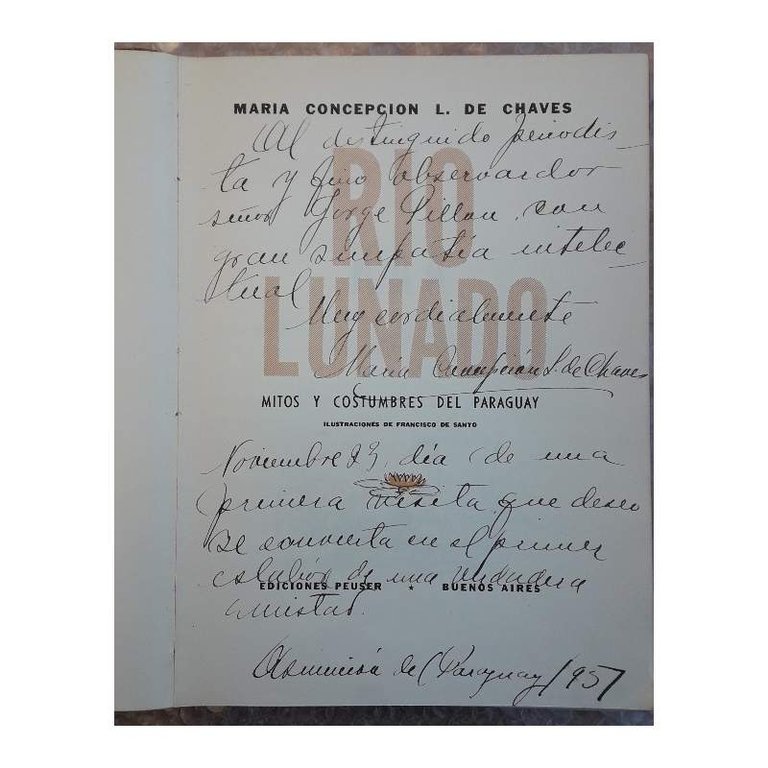 MARIA CONCEPCION L. DE CHAVES
Al distinguido periodis-
ta y fino observador
señor Jorge Pillon, con
gran simpatía intelec-
tual
Muy cordialmente
RIO
LUNADO
María Concepción L. de Chaves
MITOS Y COSTUMBRES DEL PARAGUAY
ILUSTRACIONES DE FRANCISCO DE SANTO
Noviembre 23, día de una
primera visita que deseo
se convierta en el primer
eslabón de una verdadera
amistad.
EDICIONES PEUSER * BUENOS AIRES
Asunción del Paraguay/1957